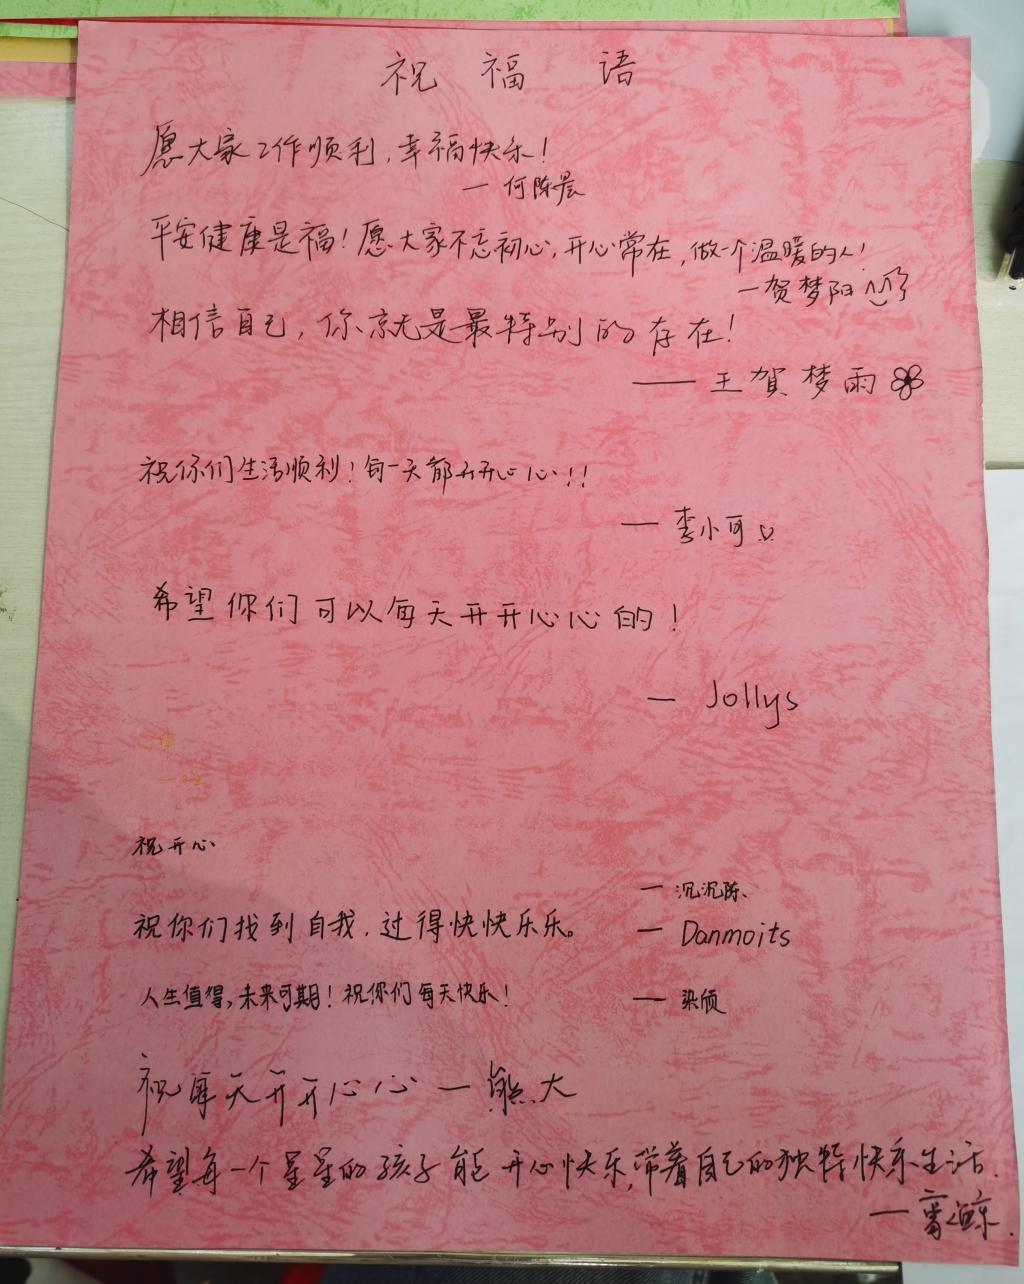 祝福语
愿大家工作顺利,幸福快乐!
— 何陈晨
平安健康是福!愿大家不忘初心,开心常在,做一个温暖的人!
—贺梦阳
相信自己,你就是最特别的存在!
—— 王贺梦雨
祝你们生活顺利!每一天都开开心心!!
— 李小可
希望你们可以每天开开心心的!
— Jollys
祝开心
— 沉沉陈、
祝你们找到自我,过得快快乐乐。 — Danmoits
人生值得,未来可期!祝你们每天快乐! — 染颀
祝每天开开心心 — 熊大
希望每一个星星的孩子能开心快乐,带着自己的独特快乐生活.